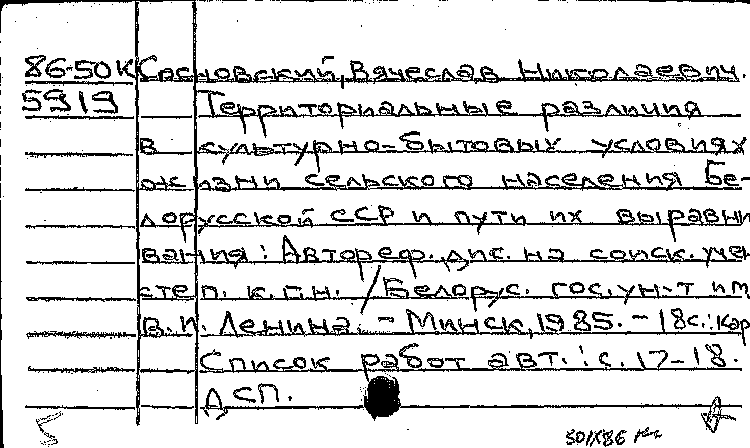 86-50К Сосновский, Вячеслав Николаевич.
5919 Территориальные различия
в культурно-бытовых условиях
жизни сельского населения Бе-
лорусской ССР и пути их выравни
вания: Автореф. дис. на соиск. учен
степ. к.г.н. / Белорус. гос. ун-т им
В.И. Ленина. - Минск, 1985. - 18с.: кар
Список работ авт.: с. 17-18.
ДСП.
5